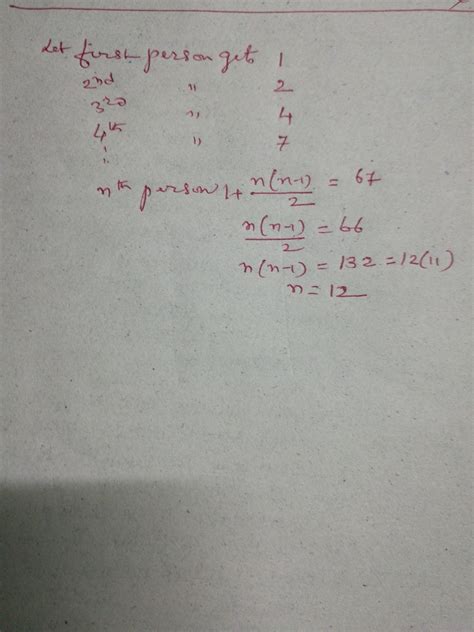 Let first person gets 1
2nd " 2
3rd " 4
4th " 7
⋮
nth person 1+ n(n-1)/2 = 67
n(n-1)/2 = 66
n(n-1) = 132 = 12(11)
n = 12